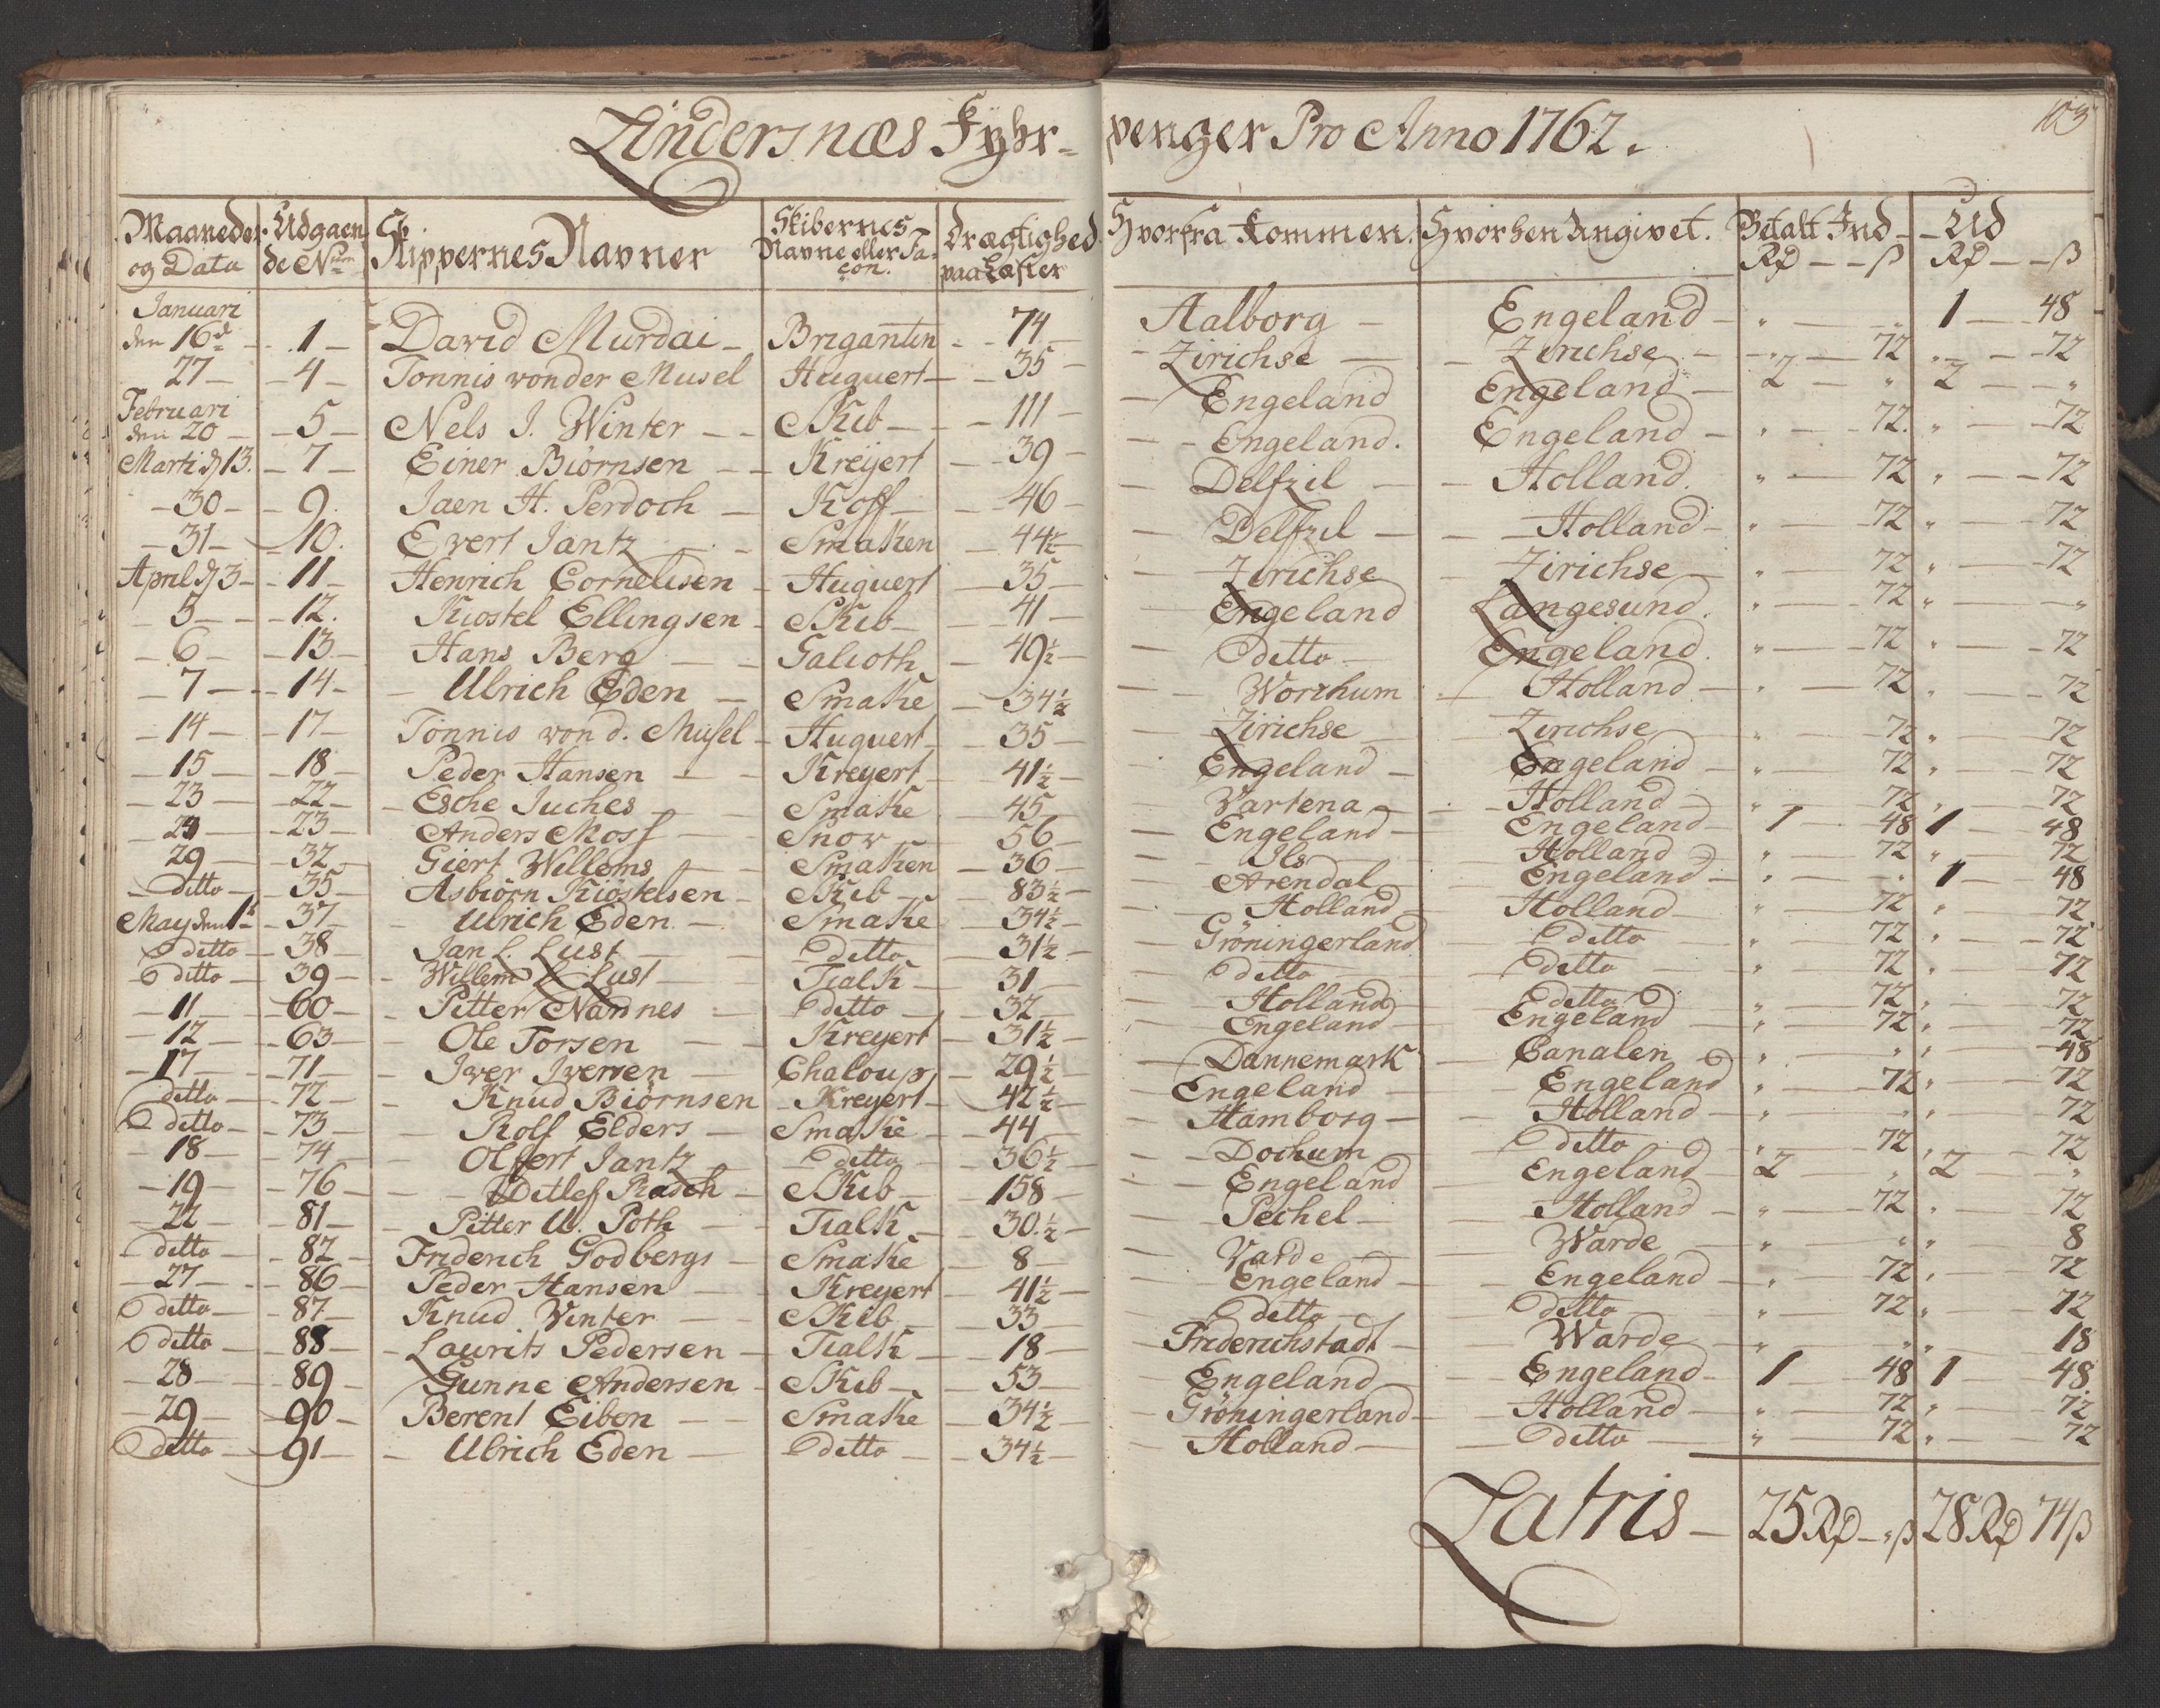 103
Lindersnæs Fyhr-penger Pro Anno 1762.
Maaneder og Data | Udgaende No | Skippernes Navner | Skibernes Navne eller Façon. | Drægtighed paa Læster | Hvorfra Kommen. | Hvorhen Angivet. | Betalt Ind Rd ß | Ud Rd ß
Januari den 16d | 1 | David Murdai | Brigantin | 74 | Aalborg | Engeland | " " | 1 48
27 | 4 | Tonnis von der Musel | Huquert | 35 | Zirichse | Zirichse | " 72 | " 72
Februari den 20 | 5 | Nels J. Winter | Skib | 111 | Engeland | Engeland | 2 " | 2 "
Marti d 13. | 7 | Einer Biörnsen | Kreyert | 39 | Engeland. | Engeland | " 72. | " 72
30 | 9. | Jaen H. Perdoch | Koff | 46 | Delfzil | Holland. | " 72 | " 72
31 | 10. | Evert Jantz | Smaken | 44½ | Delfzil | Holland | " 72 | " 72
April d 3 | 11 | Henrich Cornelisen | Huquert | 35 | Zirichse | Zirichse | " 72 | " 72
5 | 12. | Kiostel Ellingsen | Skib | 41 | Engeland | Langesund. | " 72 | " "
6 | 13 | Hans Berg | Galioth | 49½ | ditto | Engeland. | " 72 | " 72
7 | 14 | Ulrich Eden | Smake | 34½ | Workum | Holland | " 72 | " 72
14 | 17 | Tonnis von d. Musel | Huquert | 35 | Zirichse | Zirichse | " 72 | " 72
15 | 18 | Peder Hansen | Kreyert | 41½ | Engeland | Engeland | " 72 | " 72
23 | 22 | Esche Juches | Smake | 45 | Vartena | Holland | " 72 | " 72
23 | Anders Mosf | Snow | 56 | Engeland | Engeland | 1 48 | 1 48
29 | 32 | Giert Willems | Smaken | 36 | Ils | Holland | " 72 | " 72
ditto | 35 | Asbiörn Kiöstelsen | Skib | 83½ | Arendal | Engeland | " " | 1 48
May den 1t | 37 | Ulrich Eden | Smake | 34½ | Holland | Holland | " 72 | " 72
ditto | 38 | Jan L. Lust | ditto | 31½ | Gröningerland | ditto | " 72 | " 72
ditto | 39 | Willem L. Lust | Tialk | 31 | ditto | ditto | " 72 | " 72
11 | 60 | Pitter Nannes | ditto | 32 | Holland | ditto | " 72 | " 72
12 | 63 | Ole Torsen | Kreyert | 31½ | Engeland | Engeland | " 72 | " 72
17 | 71 | Iver Iversen | Chaloup | 29½ | Dannemark | Canalen | " " | " 48
ditto | 72 | Knud Biörnsen | Kreyert | 42½ | Engeland | Engeland | " 72 | " 72
ditto | 73 | Rolf Elders | Smake | 44 | Hamborg | Holland | " " | " 72
18 | 74 | Olfert Jantz | ditto | 36½ | Dockum | ditto | " 72 | " 72
19 | 76 | Ditlef Rasch | Skib | 158 | Engeland | Engeland | 2 " | 2 "
22 | 81 | Pitter U. Poth | Tialk | 30½ | Pechel | Holland | " 72 | " 72
ditto | 82 | Friderich Godbergs | Smake | 8 | Varde | Warde | " " | " 8
27 | 86 | Peder Hansen | Kreyert | 41½ | Engeland | Engeland | " 72 | " 72
ditto | 87 | Knud Vinter | Skib | 33 | ditto | ditto | " 72 | " 72
ditto | 88 | Laurits Pedersen | Tialk | 18 | Friderichstadt | Warde | " " | " 18
28 | 89 | Gunne Andersen | Skib | 53 | Engeland | Engeland | 1 48 | 1 48
29 | 90 | Berent Eiben | Smake | 34½ | Gröningerland | Holland | " 72 | " 72
ditto | 91 | Ulrich Eden | ditto | 34½ | Holland | ditto | " 72 | " 72
Latris 25 Rd " ß | 28 Rd 74 ß